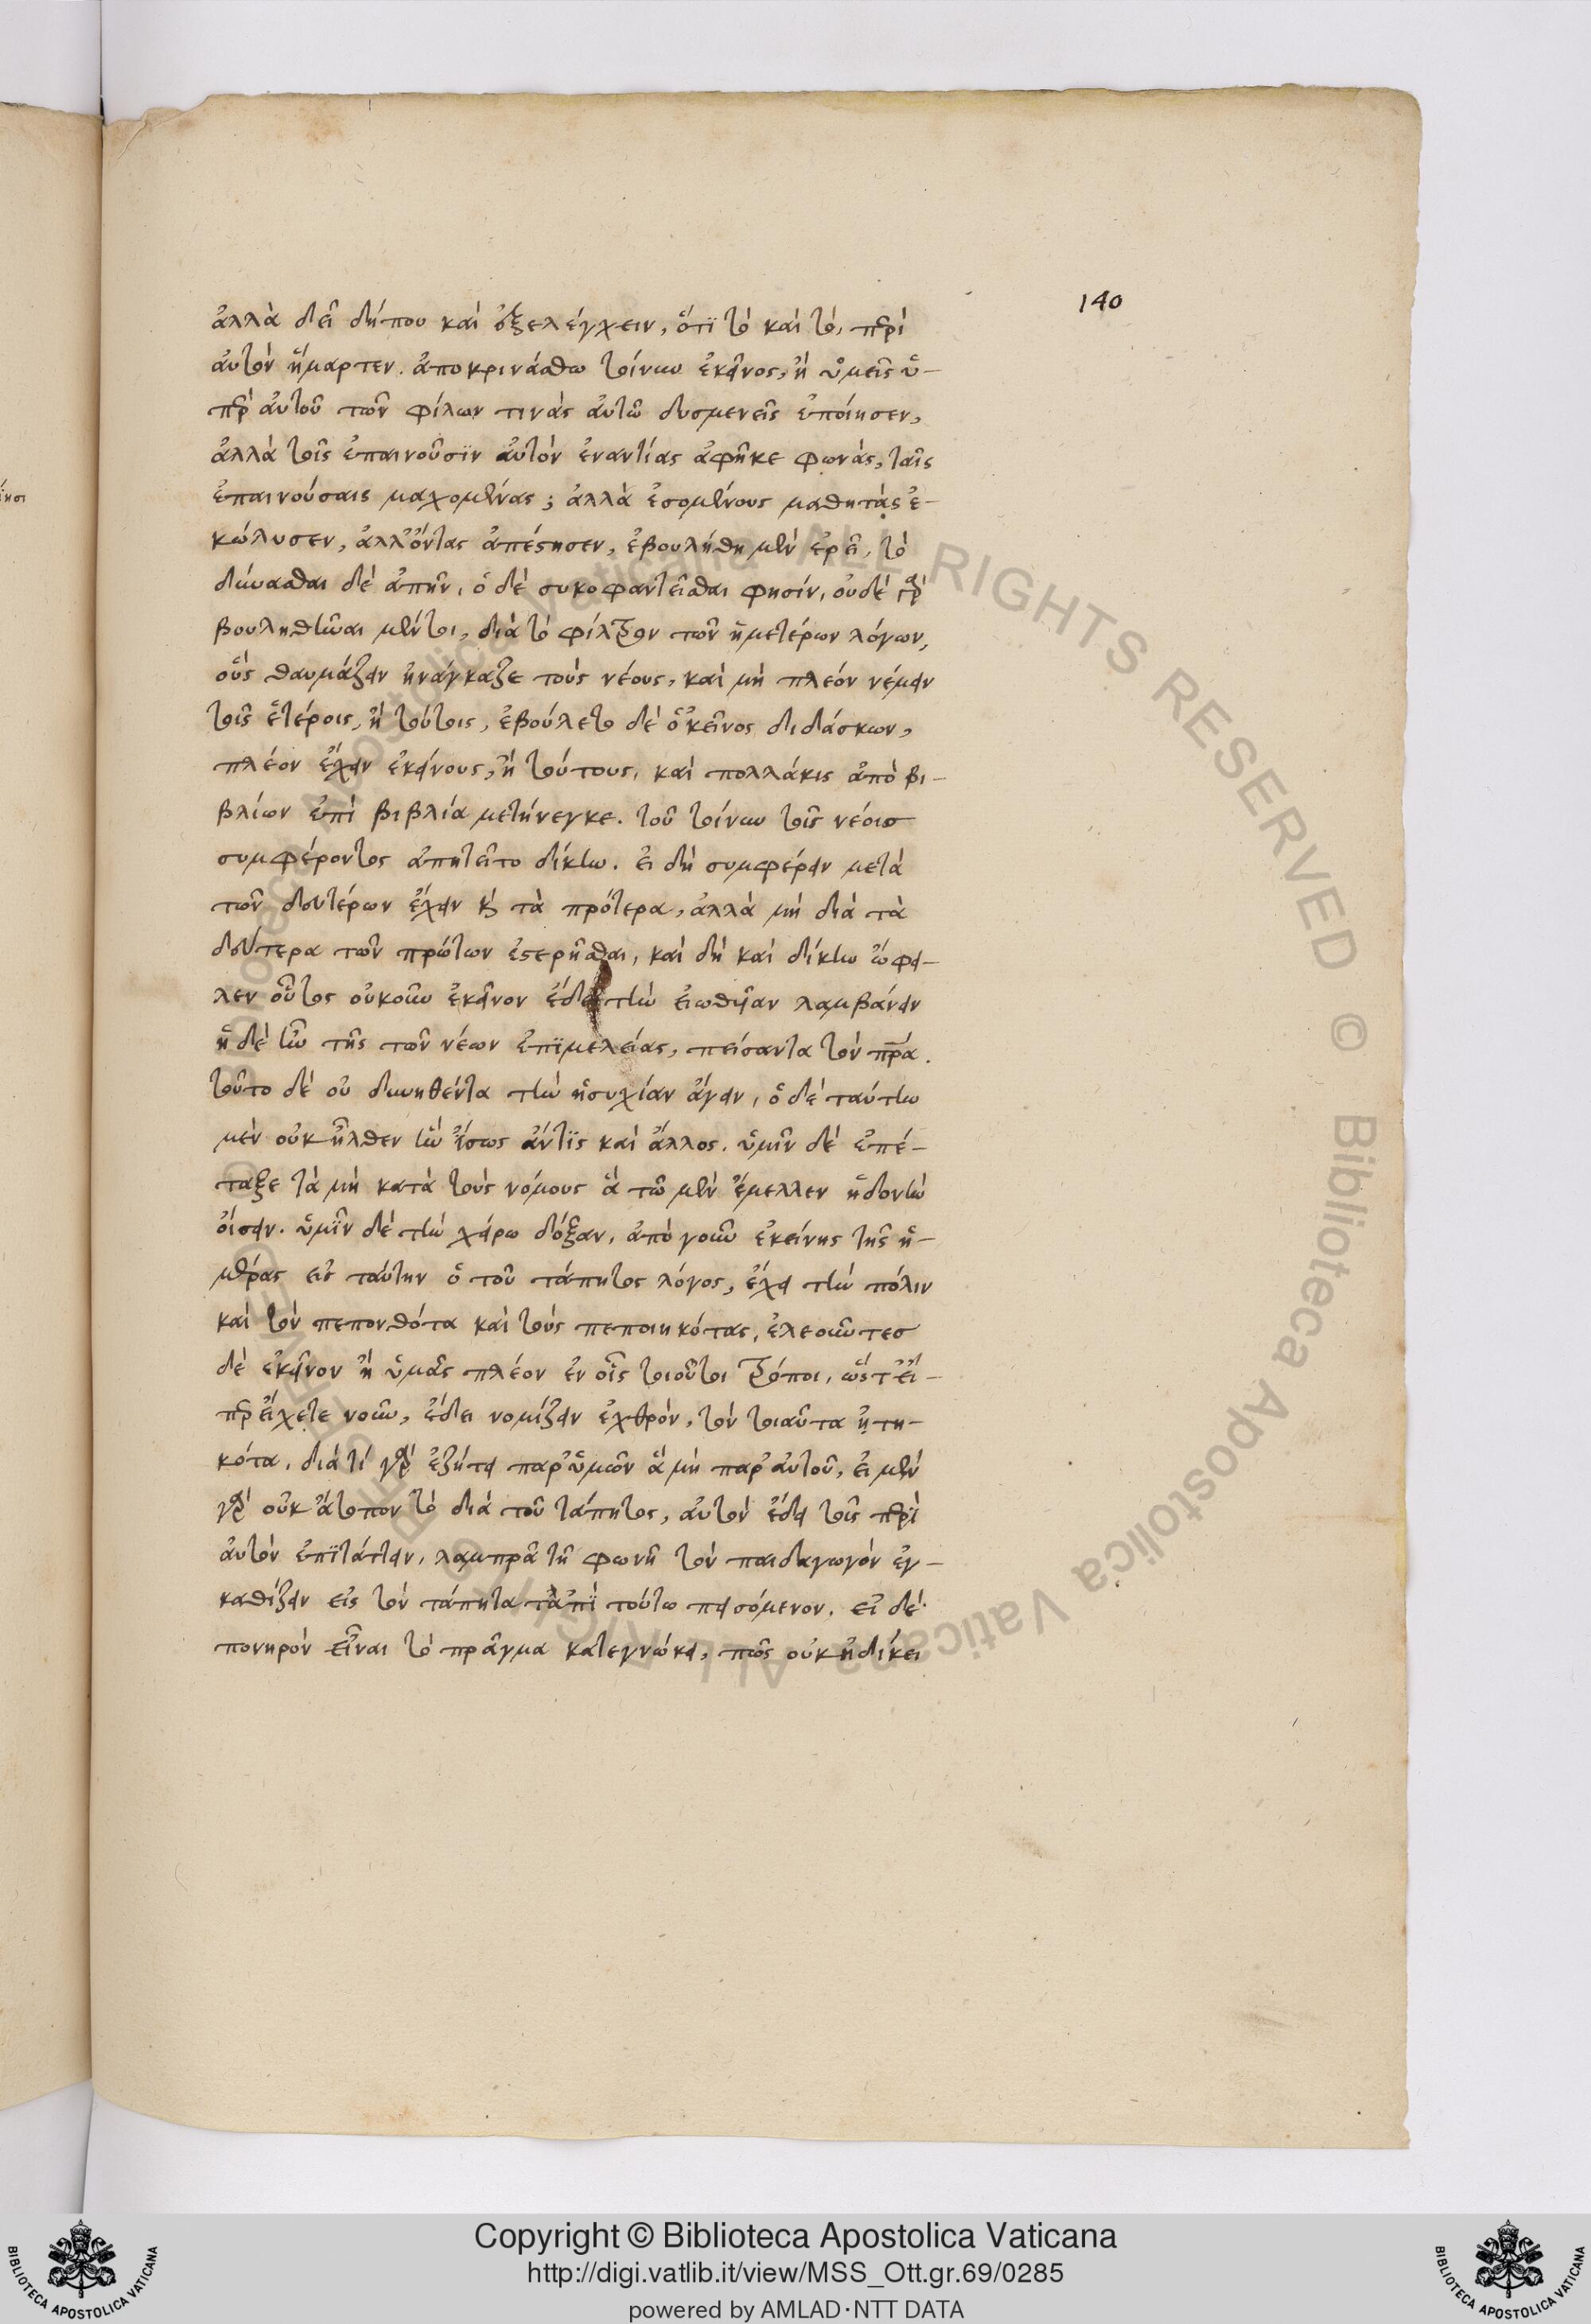 140
ἀλλὰ δεῖ δήπου καὶ ἐξελέγχειν, ὅτι τὸ καὶ τὸ, περὶ
αὐτὸν ἥμαρτεν. ἀποκρινάσθω τοίνυν ἐκεῖνος, ἢ ὑμεῖς ὑ-
πὲρ αὐτοῦ τῶν φίλων τινὰς αὐτῶ δυσμενεῖς ἐποίησεν,
ἀλλὰ τοῖς ἐπαινοῦσιν αὐτὸν ἐναντίας ἀφῆκε φωνὰς, ταῖς
ἐπαινούσαις μαχομένας; ἀλλὰ ἐσομένους μαθητὰς ἐ-
κώλυσεν, ἀλλ' ὄντας ἀπέστησεν, ἐβουλήθη μὲν ἐρεῖ, τὸ
δύνασθαι δὲ ἀπῆν, ὁ δὲ συκοφαντεῖσθαι φησὶν, οὐδὲ γὰρ
βουληθῆναι μέντοι, διὰ τὸ φίλτρον τῶν ἡμετέρων λόγων,
οὓς θαυμάζειν ἠνάγκαζε τοὺς νέους, καὶ μὴ πλέον νέμειν
τοῖς ἑτέροις, ἢ τούτοις, ἐβούλετο δὲ ὁκεῖνος διδάσκων,
πλέον ἔχειν ἐκείνους, ἢ τούτους, καὶ πολλάκις ἀπὸ βι-
βλίων ἐπὶ βιβλία μετήνεγκε. τοῦ τοίνυν τοῖς νέοισ
συμφέροντος ἀπητεῖτο δίκην. εἰ δὴ συμφέρειν μετὰ
τῶν δευτέρων ἔχειν κ τὰ πρότερα, ἀλλὰ μὴ διὰ τὰ
δεύτερα τῶν πρώτων ἐστερῆσθαι, καὶ δὴ καὶ δίκην ὤφει-
λεν οὗτος οὐκοῦν ἐκεῖνον ἔδει τὴν εἰωθυῖαν λαμβάνειν
ἡ δὲ ἦν τῆς τῶν νέων ἐπιμελείας, πείσαντα τὸν πρα.
τοῦτο δὲ οὐ δυνηθέντα τὴν ἡσυχίαν ἄγειν, ὁ δὲ ταύτην
μὲν οὐκ ἦλθεν ἣν ἴσως ἄντις καὶ ἄλλος. ὑμῖν δὲ ἐπέ-
ταξε τὰ μὴ κατὰ τοὺς νόμους ἃ τῶ μὲν ἔμελλεν ἡδονὴν
οἴσειν. ὑμῖν δὲ τὴν χείρω δόξαν, ἀπὸ γοῦν ἐκείνης τῆς ἡ-
μέρας εἰς ταύτην ὁ τοῦ τάπητος λόγος, ἔχει τὴν πόλιν
καὶ τὸν πεπονθότα καὶ τοὺς πεποιηκότας, ἐλεοῦντεσ
δὲ ἐκεῖνον ἢ ὑμᾶς πλέον ἐν οἷς τοιοῦτοι τρόποι, ὥστ' εἴ-
περ εἴχετε νοῦν, ἔδει νομίζειν ἐχθρὸν, τὸν τοιαῦτα ᾐτη-
κότα, διὰ τί γὰρ ἐζήτει παρ' ὑμῶν ἃ μὴ παρ' αὐτοῦ, εἰ μὲν
γὰρ οὐκ ἄτοπον τὸ διὰ τοῦ τάπητος, αὐτὸν ἔδει τοῖς περὶ
αὐτὸν ἐπιτάττειν, λαμπρᾶ τῆ φωνῆ τὸν παιδαγωγὸν ἐγ-
καθίζειν εἰς τὸν τάπητα τἀπὶ τούτω πεισόμενον. εἰ δὲ
πονηρὸν εἶναι τὸ πρᾶγμα κατεγνώκει, πῶς οὐκ ἠδίκει
Copyright © Biblioteca Apostolica Vaticana
http://digi.vatlib.it/view/MSS_Ott.gr.69/0285
powered by AMLAD·NTT DATA
BIBLIOTECA APOSTOLICA VATICANA
BIBLIOTECA APOSTOLICA VATICANA